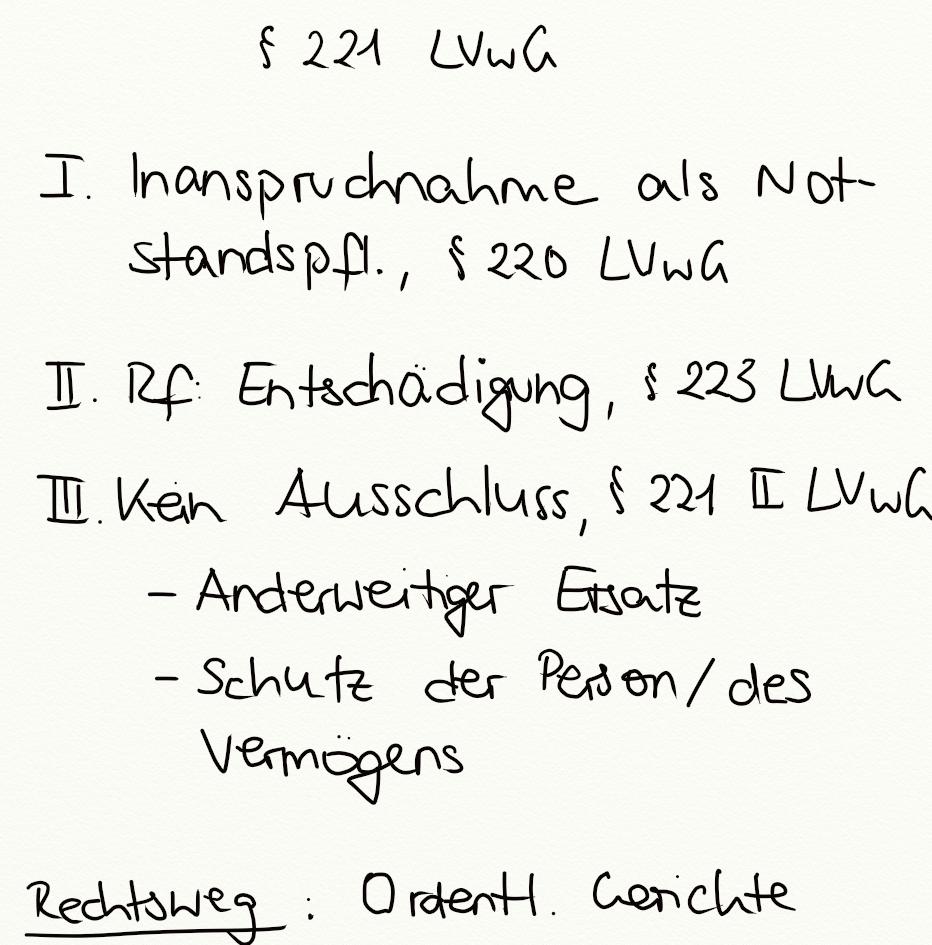 § 221 LVwG
I. Inanspruchnahme als Not-
standspfl., § 220 LVwG
II. Rf: Entschädigung, § 223 LVwG
III. Kein Ausschluss, § 221 II LVwG
- Anderweitiger Ersatz
- Schutz der Person/des
Vermögens
Rechtsweg : Ordentl. Gerichte